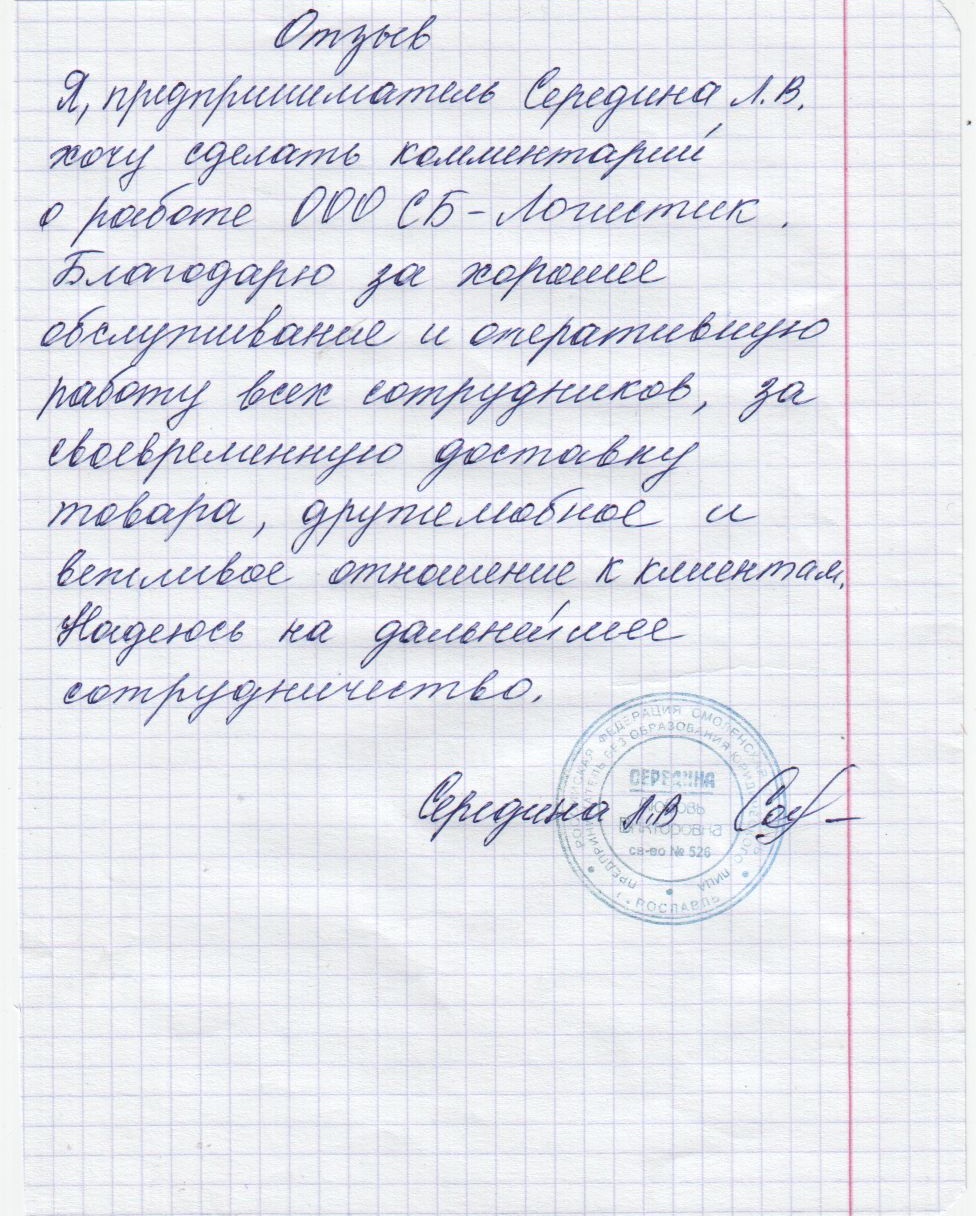 Отзыв
Я, предприниматель Середина Л.В.
хочу сделать комментарий
о работе ООО СБ-Логистик.
Благодарю за хорошее
обслуживание и оперативную
работу всех сотрудников, за
своевременную доставку
товара, дружелюбное и
вежливое отношение к клиентам.
Надеюсь на дальнейшее
сотрудничество.
Середина Л.В
РОССИЙСКАЯ ФЕДЕРАЦИЯ СМОЛЕНСКАЯ ОБЛАСТЬ
ПРЕДПРИНИМАТЕЛЬ БЕЗ ОБРАЗОВАНИЯ ЮРИДИЧЕСКОГО ЛИЦА
СЕРЕДИНА
Любовь
Викторовна
св-во № 526
г. РОСЛАВЛЬ